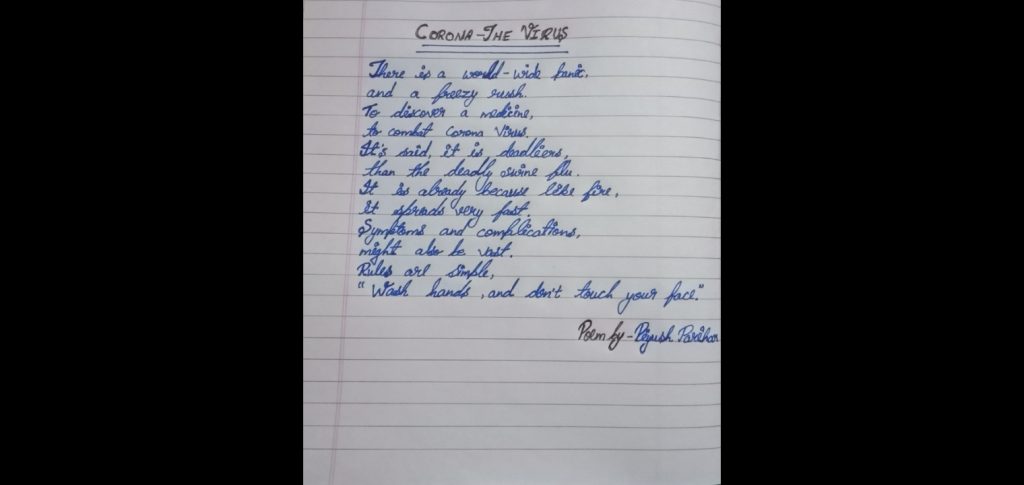 CORONA-THE VIRUS
There is a world-wide panic,
and a freezy rush.
To discover a medicine,
to combat Corona Virus.
It's said, it is deadliers,
than the deadly swine flu.
It is already because like fire,
it spreads very fast.
Symptoms and complications,
might also be vast.
Rules are simple,
"Wash hands, and don't touch your face."
Poem by-Piyush Parihar